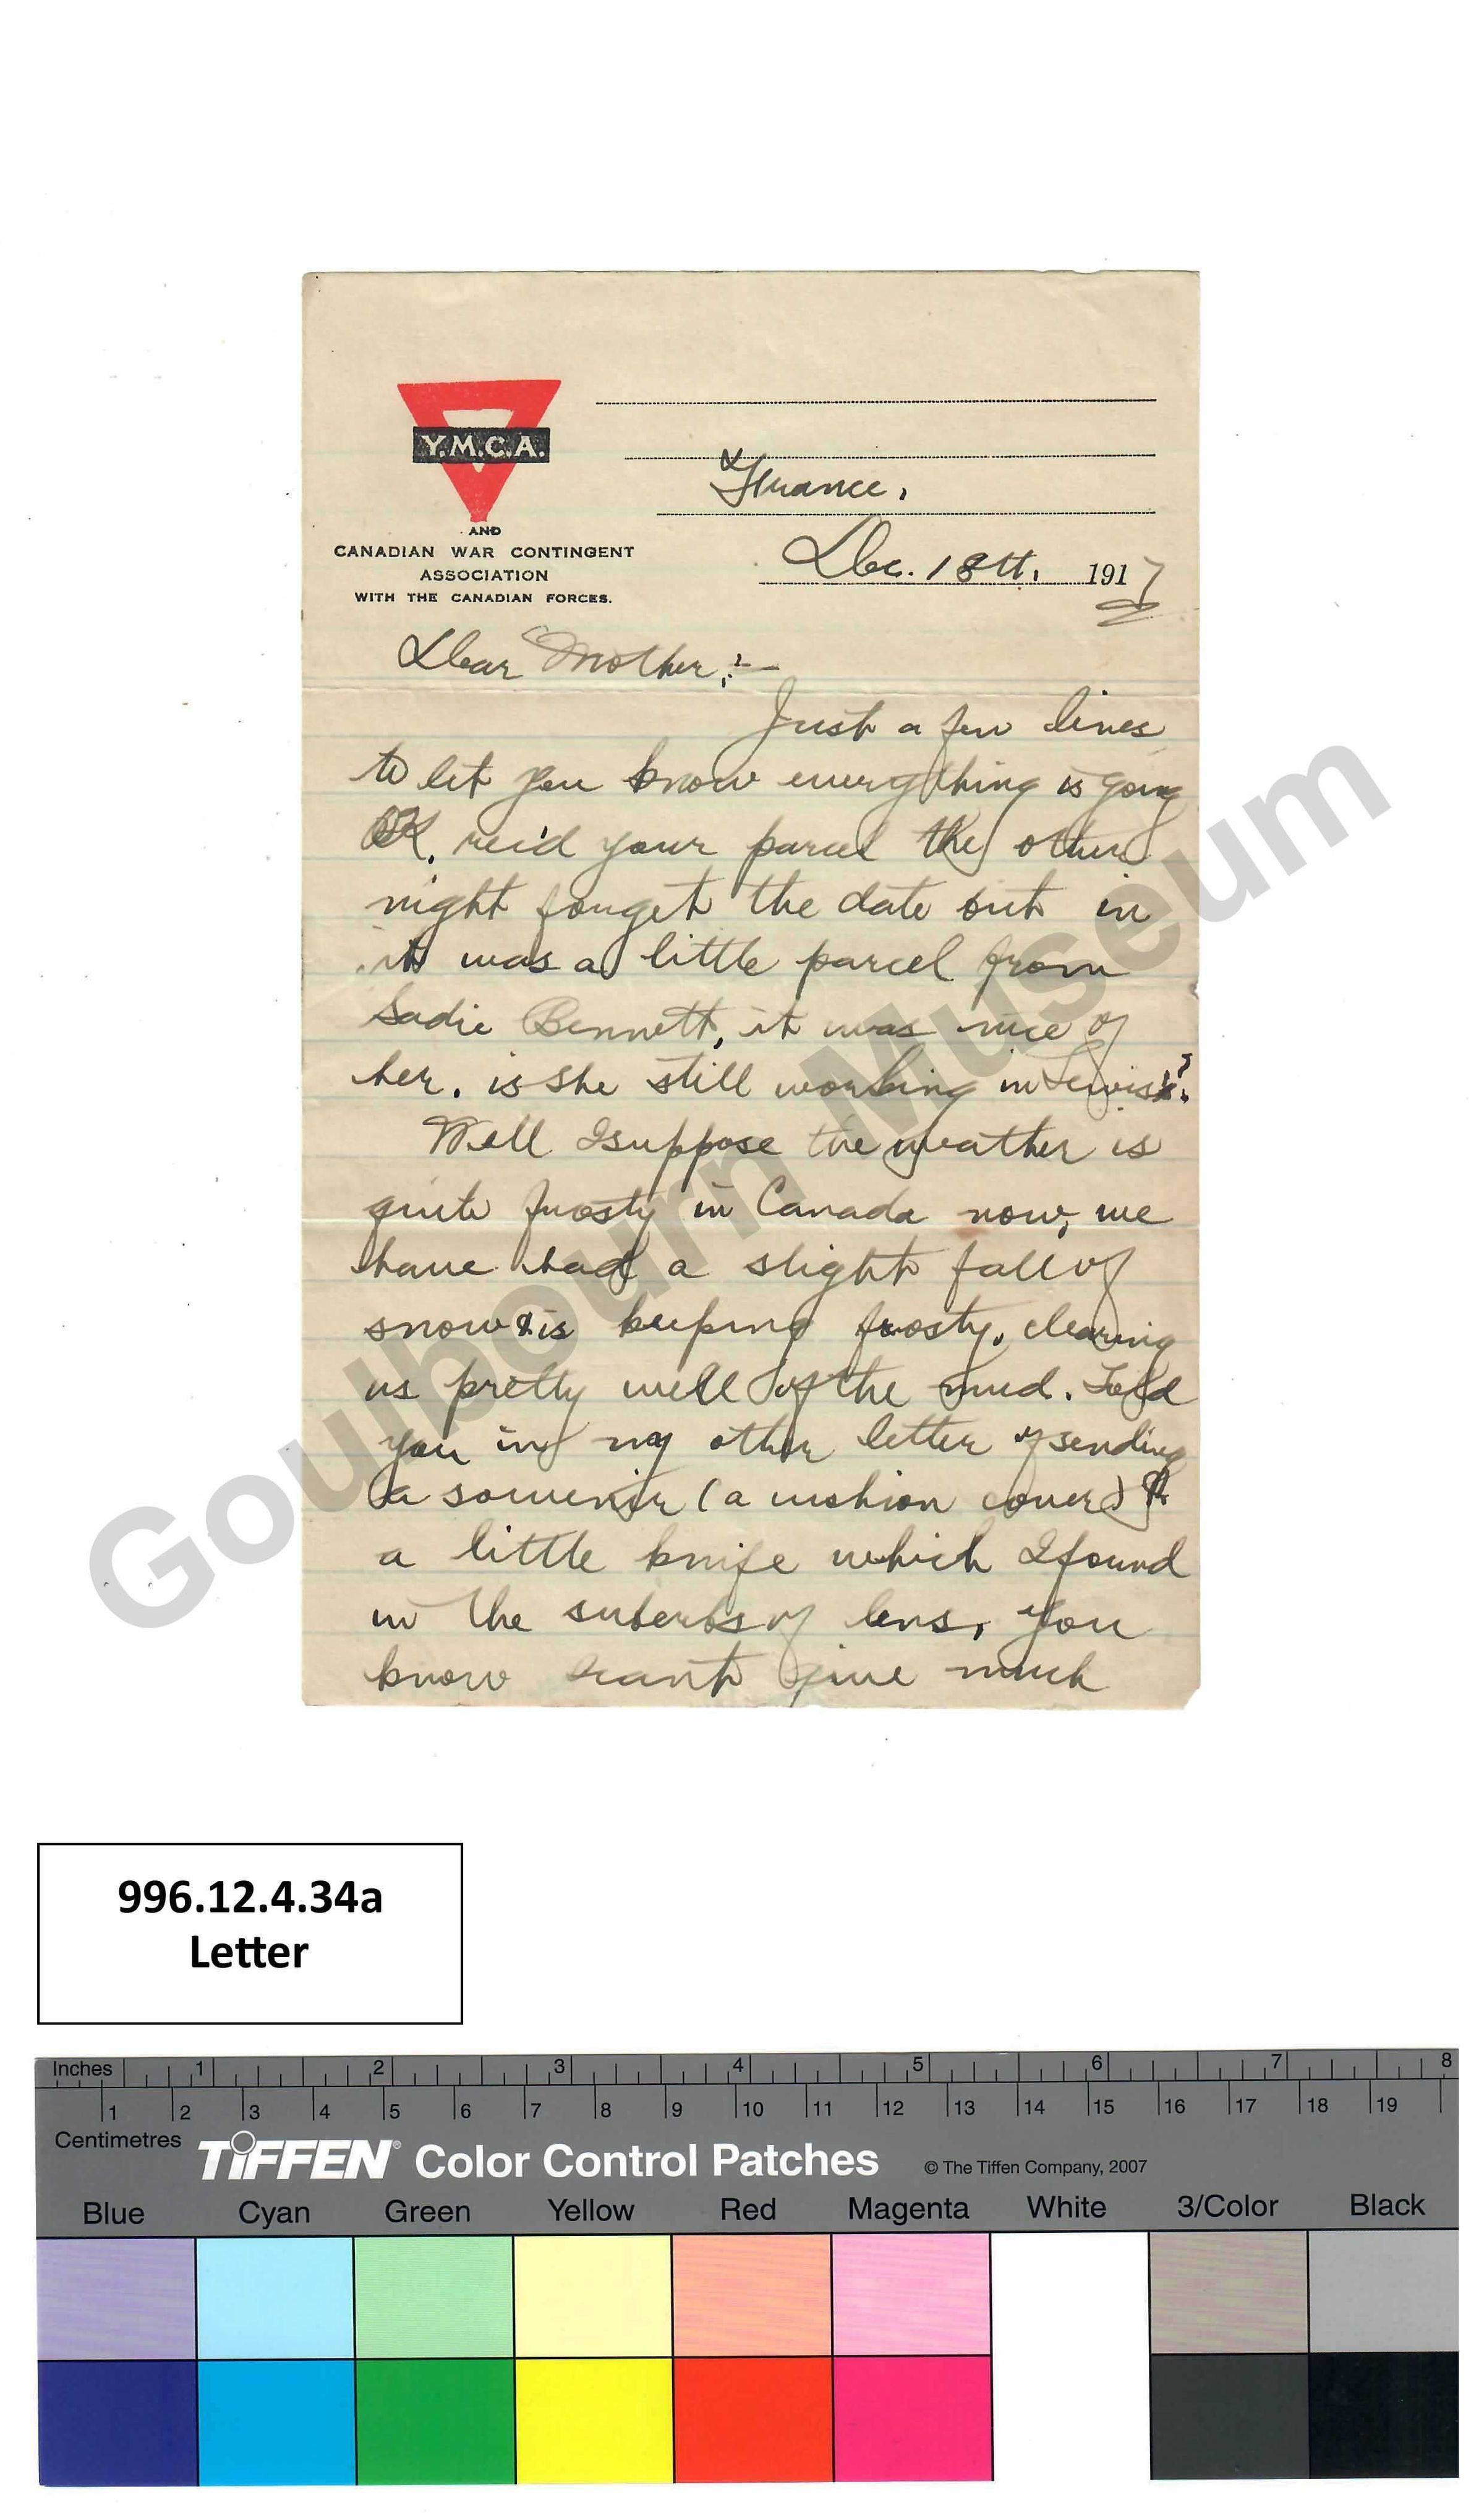 Y.M.C.A.
AND
CANADIAN WAR CONTINGENT
ASSOCIATION
WITH THE CANADIAN FORCES.
France,
Dec. 18th, 1917
Dear Mother,:-
Just a few lines
to let you know everything is going
OK. rec'd your parcel the other
night forget the date but in
it was a little parcel from
Sadie Bennett, it was nice of
her. is she still working in Lewis'?
Well I suppose the weather is
quite frosty in Canada now, we
have had a slight fall of
snow & is keeping frosty, clearing
us pretty well of the mud. Told
you in my other letter of sending
a souvenir (a cushion cover) &
a little knife which I found
in the suberbs of lens, you
know can't give much
Goulbourn Museum
996.12.4.34a
Letter
Inches 1 2 3 4 5 6 7 8
1 2 3 4 5 6 7 8 9 10 11 12 13 14 15 16 17 18 19
Centimetres
TIFFEN® Color Control Patches © The Tiffen Company, 2007
Blue Cyan Green Yellow Red Magenta White 3/Color Black